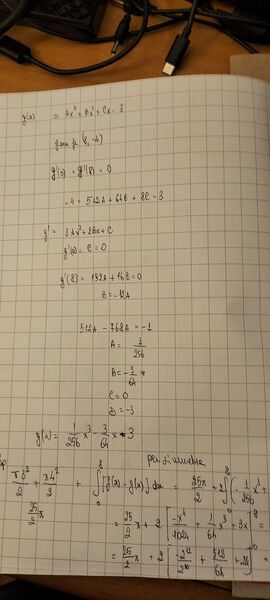 g(x) = Ax³ + Bx² + Cx - 3
g'(0) = g'(8) = 0
-4 = 512A + 64B + 8C - 3
g' = 3Ax² + 2Bx + C
g'(0) = C = 0
g'(8) = 192A + 16B = 0
B = -12A
512A - 768A = -1
A = 1/256
B = -3/64
C = 0
D = -3
g(x) = 1/256 x³ - 3/64 x² - 3
π3²/2 + π4²/2 + ∫₀⁸ [f(x) - g(x)] dx = 25π/2 + 2∫₀⁸ (-1/256 x³ +
25/2 π
= 25/2 π + 2 [-x⁴/1024 + 1/64 x³ + 3x]₀⁸ =
= 25/2 π + 2 [-2¹²/2¹⁰ + 512/64 + 24]